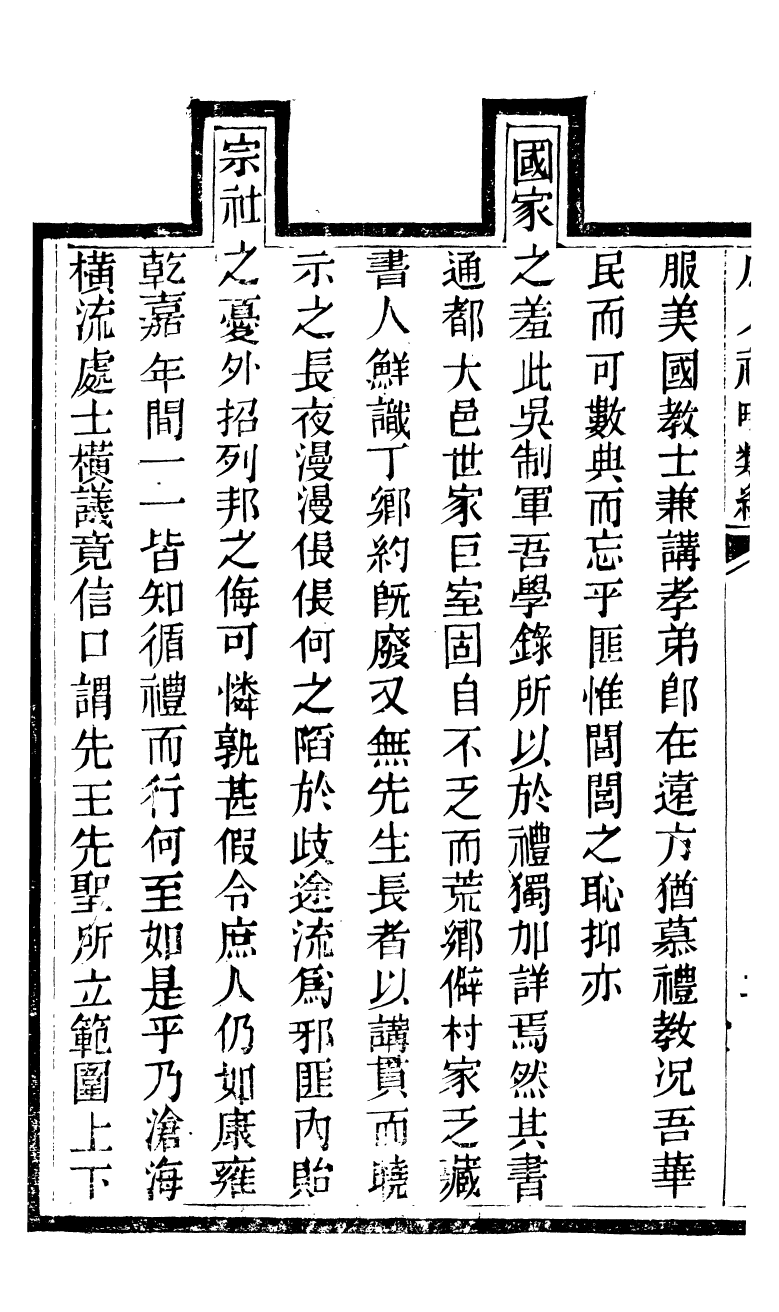 服美國教士兼講孝弟郎在遠方猶慕禮教况吾華
民而可數典而忘乎匪惟閭閻之恥抑亦
國家之羞此吳制軍吾學錄所以於禮獨加詳焉然其書
通都大邑世家巨室固自不乏而荒鄉僻村家乏藏
書人鮮識丁鄉約旣廢又無先生長者以講貫而曉
示之長夜漫漫倀倀何之陷於歧途流爲邪匪內貽
宗社之憂外招列邦之侮可憐孰甚假令庶人仍如康雍
乾嘉年間一一皆知循禮而行何至如是乎乃滄海
橫流處士橫議竟信口謂先王先聖所立範圍上下